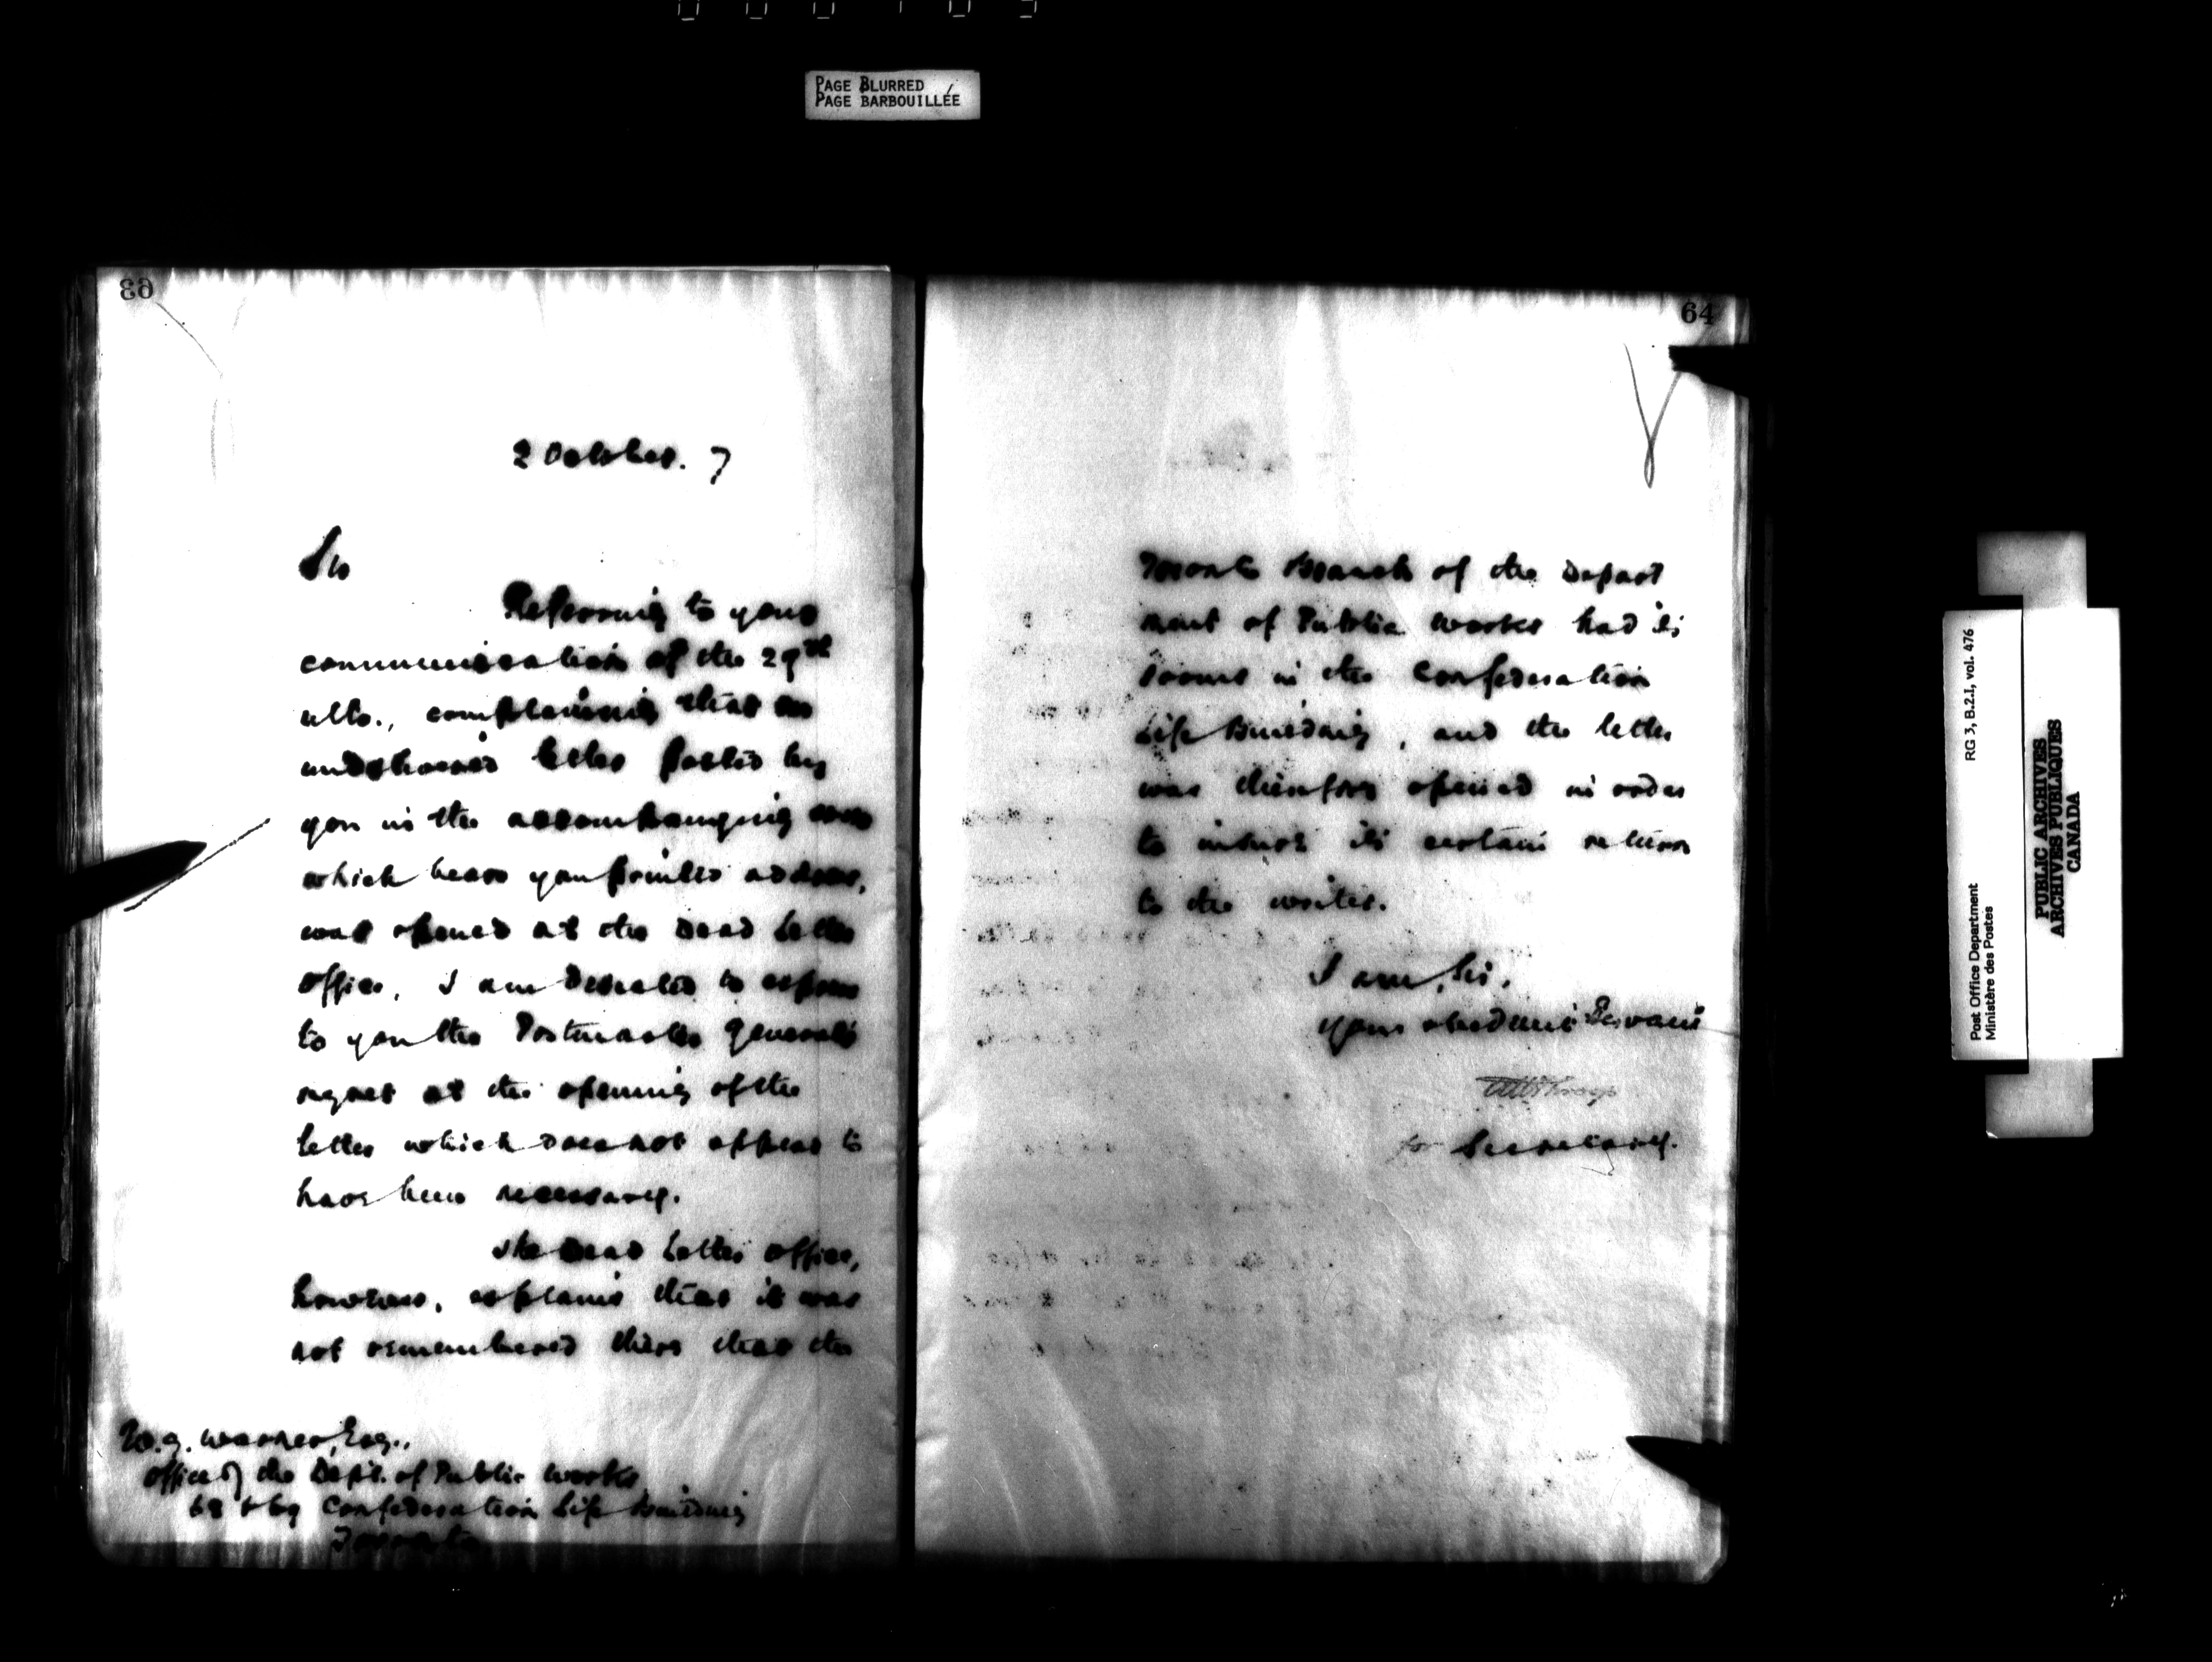 PAGE BLURRED
PAGE BARBOUILLÉE
63
2 October. 7
Sir
Referring to your
communication of the 29th
ulto., complaining that an
undelivered letter posted by
you in the accompanying cover
which bears your printed address,
was opened at the Dead Letter
Office, I am directed to express
to you the Postmaster General's
regret at the opening of the
letter which does not appear to
have been necessary.
The Dead Letter Office,
however, explains that it was
not remembered there that the
W.G. Warner, Esq.,
Office of the Dept. of Public Works
68 & 69 Confederation Life Building
Toronto
64
Toronto Branch of the Depart
ment of Public Works had its
rooms in the Confederation
Life Building, and the letter
was therefore opened in order
to insure its certain return
to the writer.
I am, Sir,
Your obedient Servant
for Secretary.
RG 3, B.2.I, vol. 476
Post Office Department
Ministère des Postes
PUBLIC ARCHIVES
ARCHIVES PUBLIQUES
CANADA